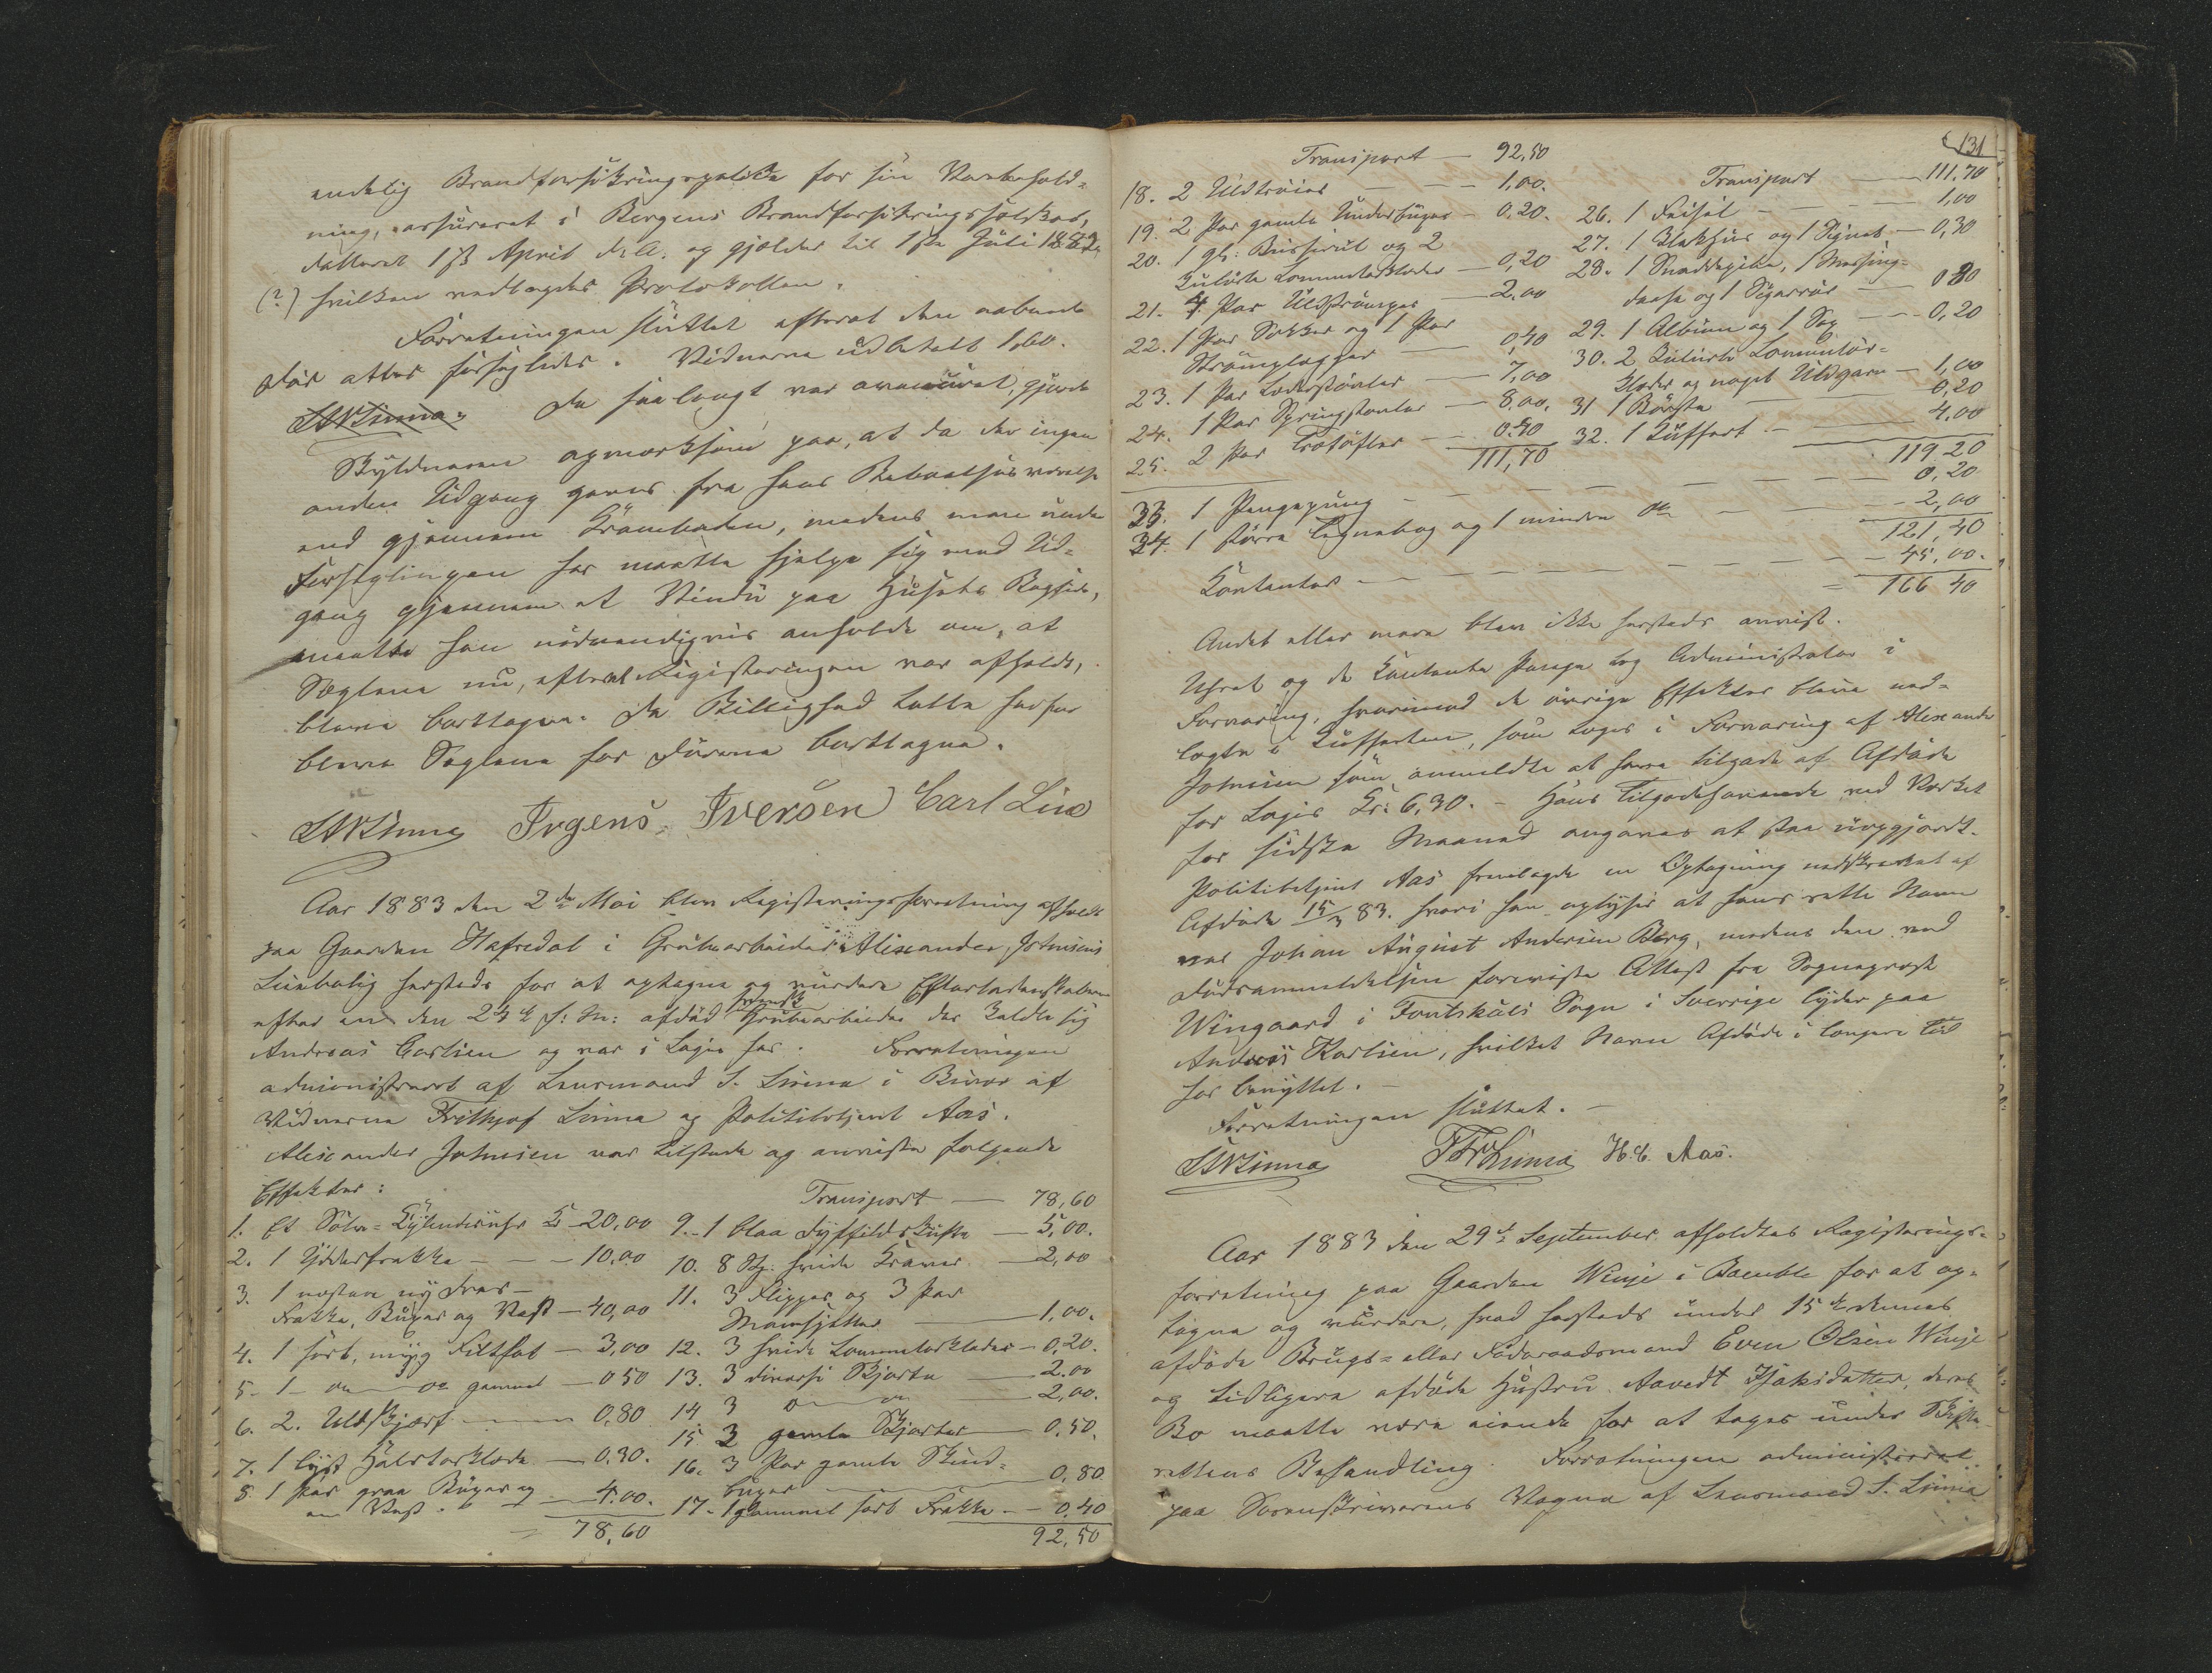 endelig Brandforsikringspolice for sin Varebehold-
ning, assureret i Bergens Brandforsikringsselskab,
datteret 1ste April d. A. og gjælder til 1ste Juli 1882
(?) hvilken vedlægdes Protokollen.
Forretningen sluttet efterat den aabnede
Dør atter forsegledes. Vidnerne udbetalt 1,60.
SWLinna. Da saalangt var avanceret, gjorde
Skyldneren opmærksom paa, at da der ingen
anden Udgang gaves fra hans Beboelsesværelse
end gjennem Kramboden, medens man under
Forseglingen har maatte hjelpe sig med Ud-
gang gjennem et Vindu paa Husets Bagside,
maatte han nødvendigvis anholde om, at
Seglene nu, efterat Registeringen var afholdt,
bleve borttagne. Da Billighed talte herfor
bleve Seglene for Dørene borttagne.
SWLinna Irgens Iversen Carl Lie
Aar 1883 den 2den Mai blev Registeringsforretning afholdt
paa Gaarden Hafredal i Grubearbeider Alexander Johnsens
Leiebolig hersteds for at optegne og vurdere Efterladenskaberne
svensk
efter en den 24de f: M: afdød Grubearbeider der kaldte sig
Andreas Carlsen og var i Logis her. Forretningen
administreret af Lensmand S. Linna i Bivær af
Vidnerne Frithjof Linna og Politibetjent Aas.
Alexander Johnsen var tilstede og anviste følgende
Effekter:
1. Et Sølv-Cylinderuhr Kr 20,00
2. 1 Yderfrakke - - - 10,00
3. 1 næsten ny Dres-
Frakke, Buxer og Vest - 40,00
4. 1 sort, myg Filthat - 3,00
5. 1 do do gammel - 0 50
6. 2. Uldskjærf - 0,80
7. 1 lyst Halstørklæde - 0,30.
8. 1 par graa Buxer og
en Vest. - 4.00.
78,60
Transport - 78,60
9. 1 blaa Dyffelds Kufte - 5,00.
10. 8 St. hvide Kraver - 2,00
11. 3 Flipper og 3 Par
Manschetter - 1,00.
12. 3 hvide Lommetørklæder - 0,20.
13. 3 diverse Skjorte - 2.00
14 3 do do 2,00.
15 3 gamle Skjorter - 0,50.
16. 3 Par gamle Skind-
buxer - 0,80.
17. 1 gammel sort Frakke - 0,40
92,50
131
Transport - 92,50
18. 2 Uldtrøier - - - 1,00.
19. 2 Par gamle Underbuxer - 0,20.
20. 1 gl: Buserul og 2
kulørte Lommetørklæder - 0,20
21. 4 Par Uldstrømper - 2,00
22. 1 Par Sokker og 1 Par
Strømplegger - 0,40
23. 1 Par Læderstøvler - 7,00
24. 1 Par Springstøvler - 8,00.
25. 2 Par Trætøfler - 0.40
111,70
Transport - 111,70
26. 1 Feisel - 1,00
27. 1 Blækhus og 1 Signet - 0,30
28. 1 Snaddepibe, 1 Messing-
daase og 1 Sigarrør - 0 80
29. 1 Album og 1 Bog - 0,20
30. 2 kulørte Lommetør-
klæder og noget Uldgarn - 1,00
31 1 Børste - 0,20
32. 1 Kuffert - 4,00
119 20
33. 1 Pengepung - 0,20
34. 1 større Tegnebog og 1 mindre do - 2,00
121,40
Kontanter - 45,00.
= 166 40
Andet eller mere blev ikke hersteds anvist.
Uhret og de kontante Penge tog Administrator i
Forvaring, hvorimod de øvrige Effekter bleve ned-
lagte i Kufferten, som toges i Forvaring af Alexander
Johnsen som anmeldte at have tilgode af Afdøde
for Logis Kr: 6,30. - Hans Tilgodehavende ved Værket
for sidste Maaned angaves at staa uopgjordt.
Politibetjent Aas fremlagde en Optegning nedskrevet af
Afdøde 15/3 83. hvori han oplyser at hans rette Navn
var Johan August Andersen Berg, medens den ved
Dødsanmeldelsen foreviste Attest fra Sogneprest
Wingaard i Fontskåls Sogn i Sverrige lyder paa
Andreas Karlsen, hvilket Navn Afdøde i længere Tid
har benyttet. -
Forretningen sluttet. -
SWLinna FWLinna H. C. Aas.
Aar 1883 den 29de September afholdtes Registerings-
forretning paa Gaarden Winje i Bamble for at op-
tegne og vurdere, hvad hersteds under 15de dennes
afdøde Brugs- eller Føderaadsmand Even Olsen Winje
og tidligere afdøde Hustru Aavedt Isaksdatter, deres
Bo maatte være eiende for at tages under Skifte-
rettens Behandling. Forretningen administreret
paa Sorenskriverens Vegne af Lensmand S. Linna